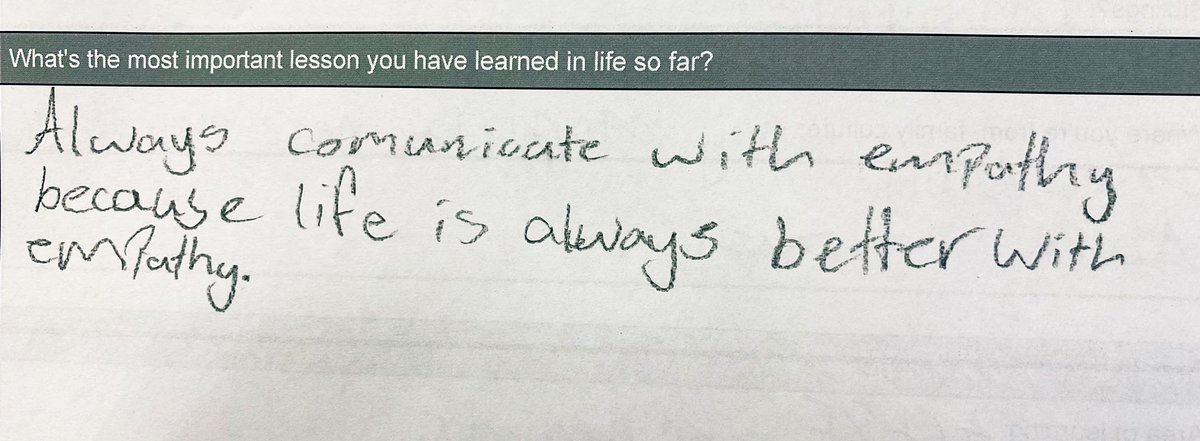 What's the most important lesson you have learned in life so far?
Always comunicate with empathy
because life is always better with
empathy.